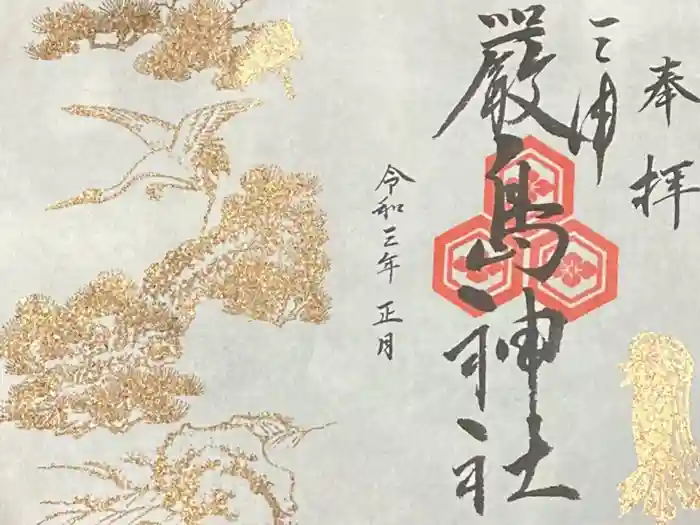 奉拝
三浦
嚴島神社
令和三年 正月